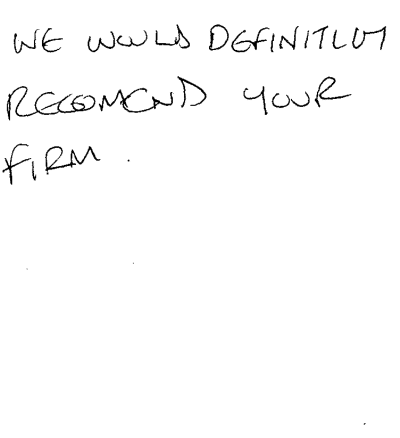 WE WOULD DEFINITLEY
RECOMMEND YOUR
FIRM.